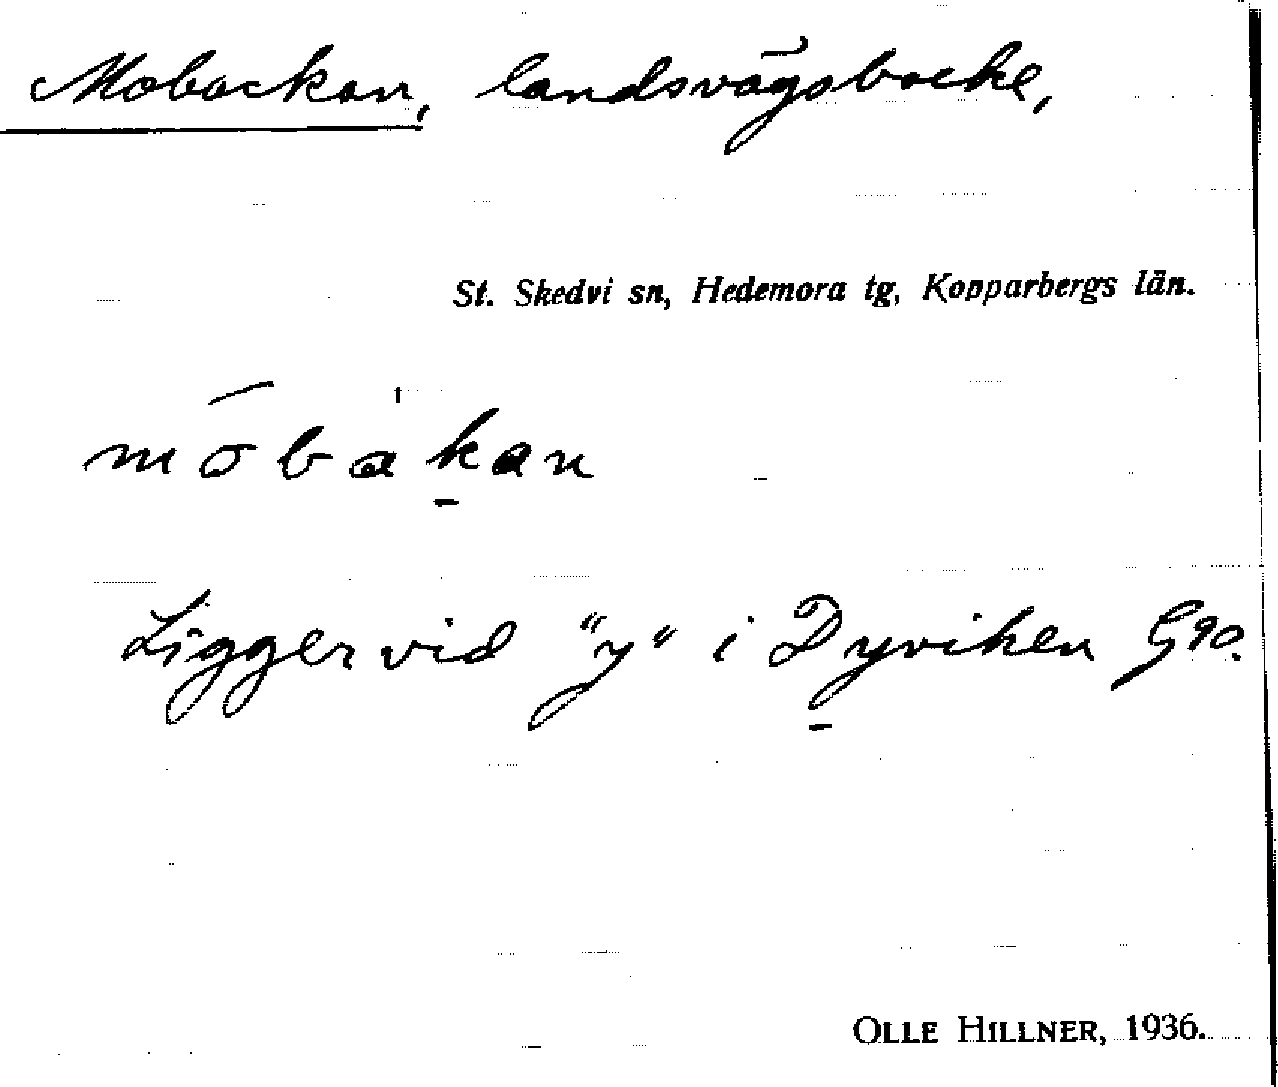 Mobackan, landsvägsbacke,
St. Skedvi sn, Hedemora tg, Kopparbergs län.
mōbakan
Ligger vid "y" i Dyviken G90.
OLLE HILLNER, 1936.